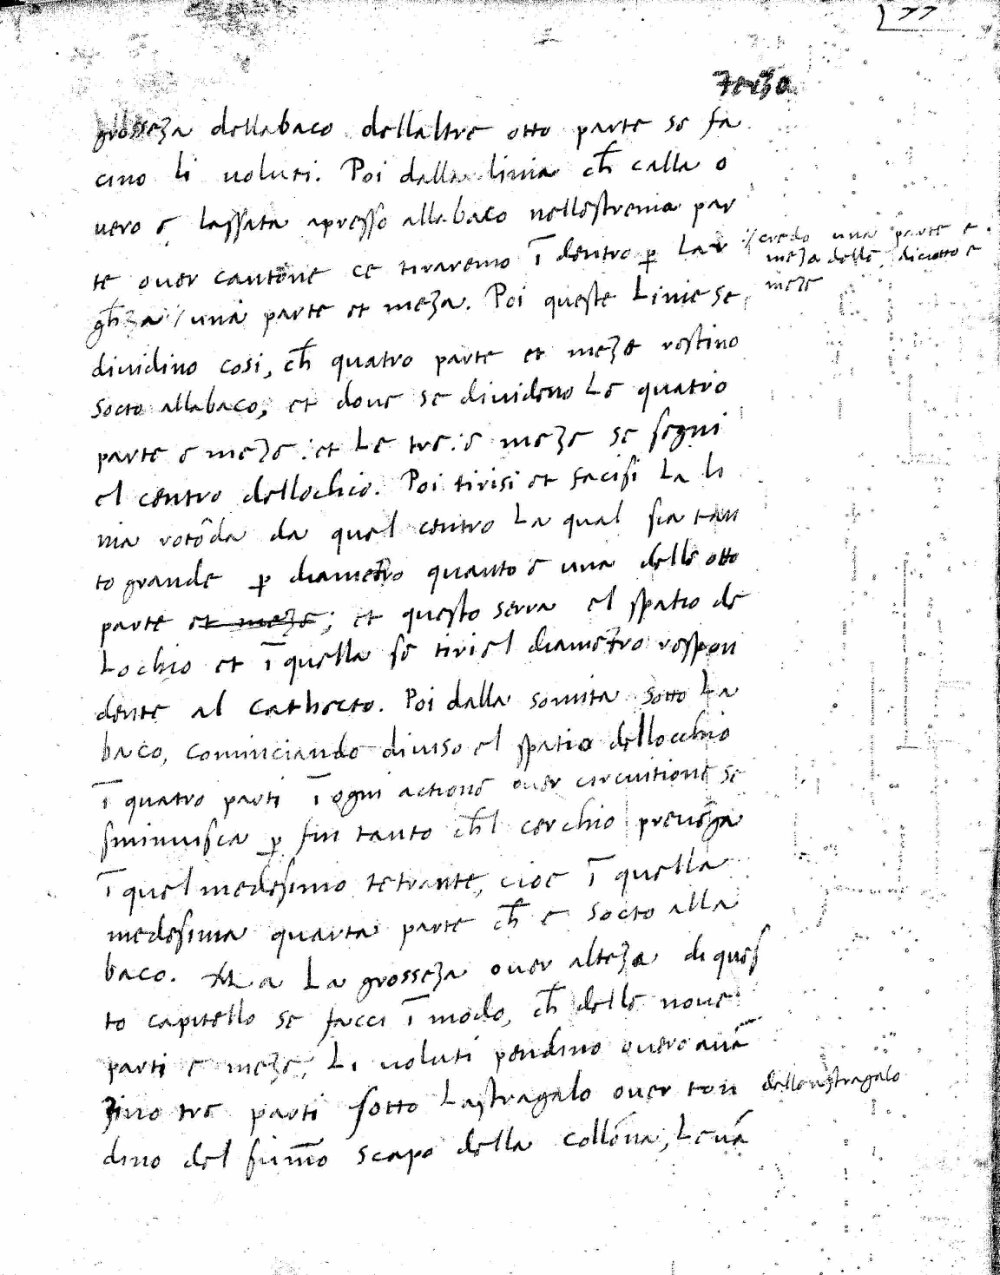 77
Terzo
grosseza dellabaco dellaltre otto parte se fa
cino li voluti. Poi dalla linia ch̄ calla o
vero e lassata apresso allabaco nellestrema par
te over cantone ce tiraremo ī dentro p̱ Lar
gh̄za / una parte et meza. Poi queste Linie se
dividino cosi, ch̄ quatro parte et meze restino
socto allabaco, et dove se divideno Le quatro
parte e meze : et Le tre : e meze se segni
el centro dellochio. Poi tirisi et facisi La li
nia rotōda da quel centro La qual sia tan
to grande p̱ diametro quanto e una delle otto
parte et meze ; et questo serra el spatio de
Lochio et ī quella se tiri el diametro respon
dente al cathecto. Poi dalla somita sotto La
baco, cominciando diviso el spatio dellocchio
ī quatro parti ī ogni actione over circuitione se
sminuisca p̱ fin tanto ch̄l cerchio prevēga
ī quel medesimo tetrante, cioe ī quella
medesima quarta parte ch̄ e socto alla
baco. Ma La grosseza over alteza di ques
to capitello se facci ī modo, ch̄ delle nove
parti e meze, Li voluti pendino overo avā
zino tre parti sotto Lastragalo over ton
dino del sum̄o scapo della collōna, Levā
credo una parte e
meza delle diciotto e
meze
dellastragalo